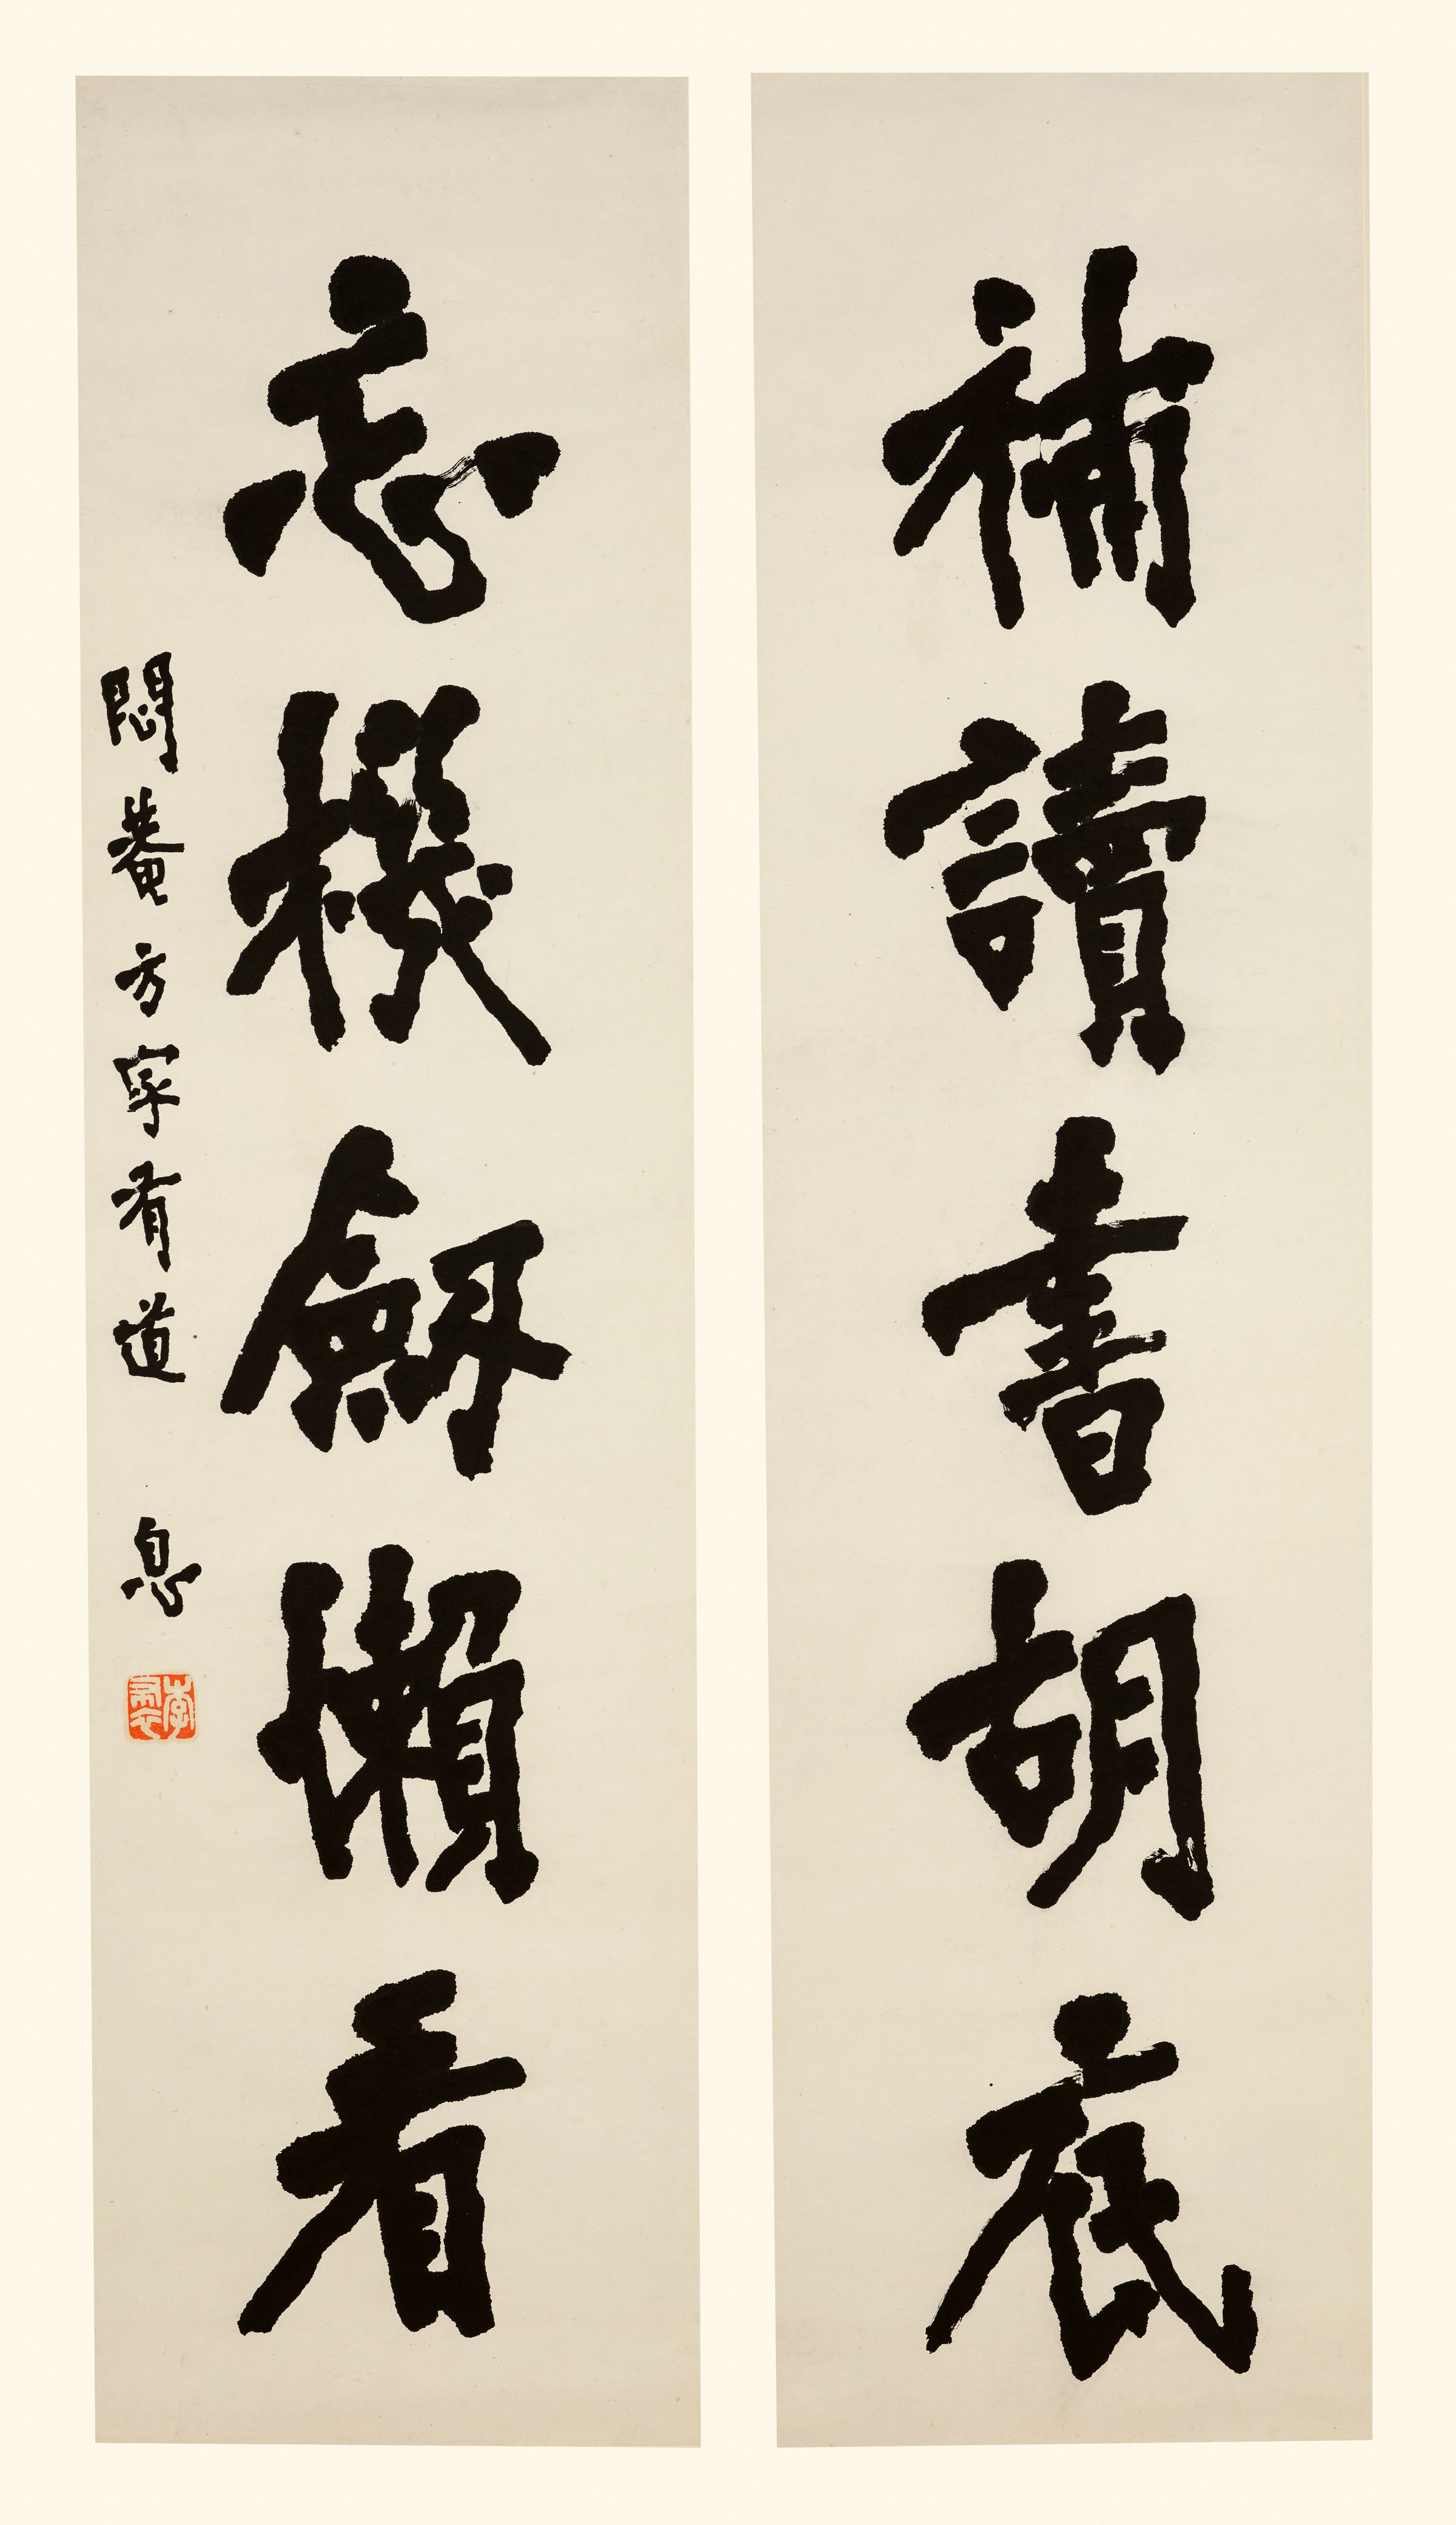 補讀書胡底
忘機劒懶看
悶菴方家有道 息